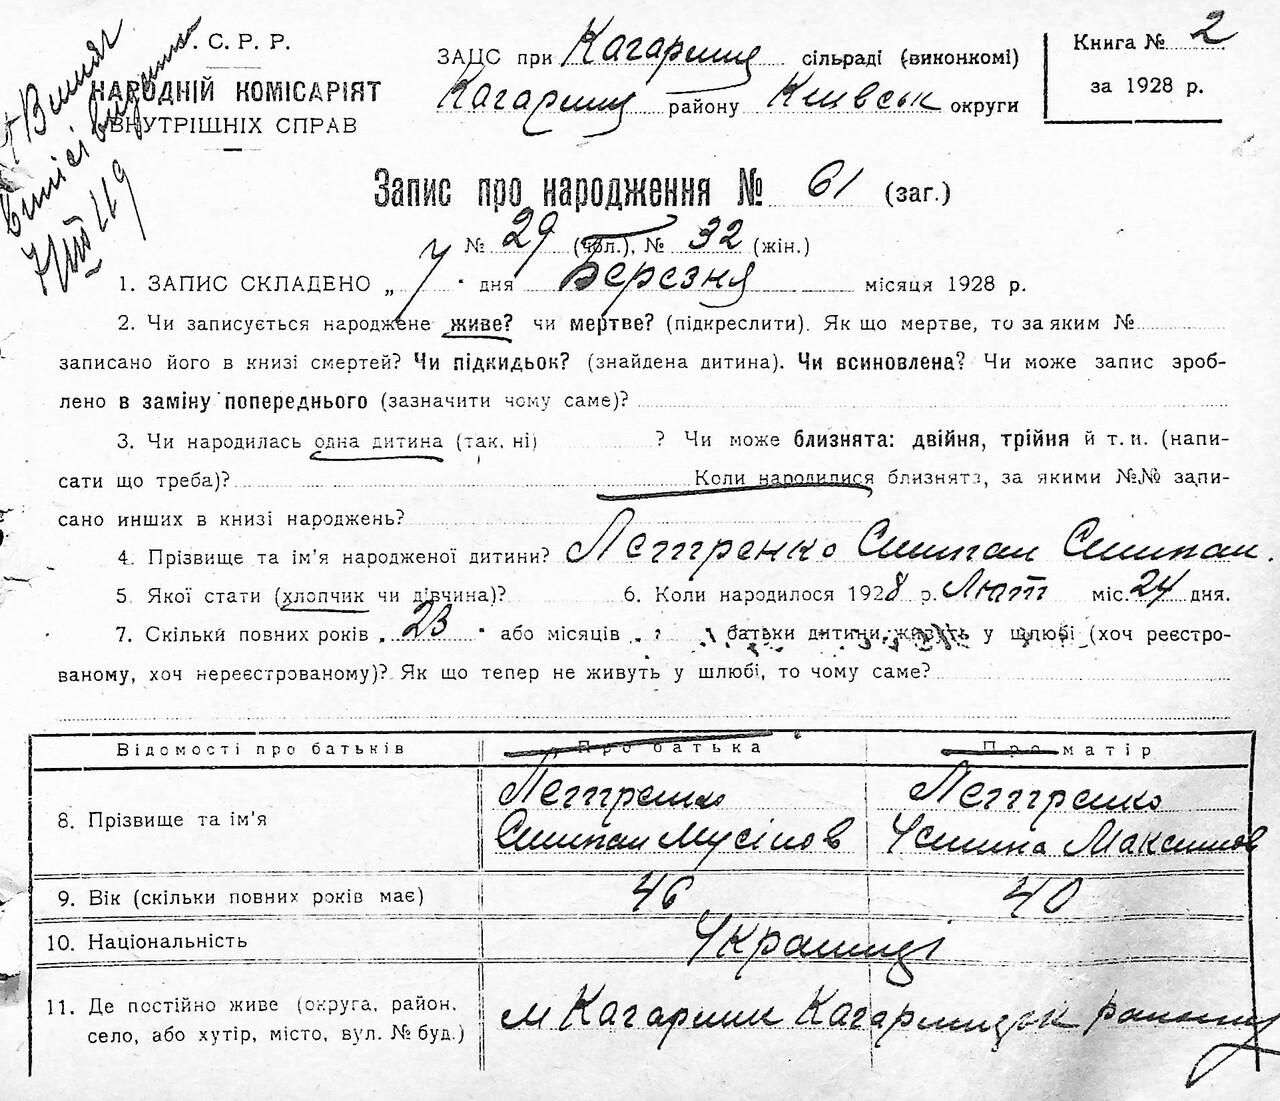 . С. Р. Р.
НАРОДНІЙ КОМІСАРІЯТ
ВНУТРІШНІХ СПРАВ
ЗАЦС при Кагарлиц сільраді (виконкомі)
Кагарлиц району Київськ округи
Книга № 2
за 1928 р.
Запис про народження № 61 (заг.)
№ 29 (чол.), № 32 (жін.)
1. ЗАПИС СКЛАДЕНО „ 7 " дня Березня місяця 1928 р.
2. Чи записується народжене живе? чи мертве? (підкреслити). Як що мертве, то за яким №
записано його в книзі смертей? Чи підкидьок? (знайдена дитина). Чи всиновлена? Чи може запис зроб-
лено в заміну попереднього (зазначити чому саме)?
3. Чи народилась одна дитина (так, ні) ? Чи може близнята: двійня, трійня й т. и. (напи-
сати що треба)? Коли народилися близнята, за якими №№ запи-
сано инших в книзі народжень?
4. Прізвище та ім'я народженої дитини? Петренко Степан Степан.
5. Якої стати (хлопчик чи дівчина)? 6. Коли народилося 1928 р. Лют міс. 24 дня.
7. Скільки повних років „ 23 " або місяців батьки дитини живуть у шлюбі (хоч реєстро-
ваному, хоч нереєстрованому)? Як що тепер не живуть у шлюбі, то чому саме?
Відомості про батьків Про батька Про матір
8. Прізвище та ім'я
Петренко
Степан Мусіїов
Петренко
Устина Максимов
9. Вік (скільки повних років має) 46 40
10. Національність Українці
11. Де постійно живе (округа, район,
село, або хутір, місто, вул. № буд.)
м Кагарлик Кагарлицьк району